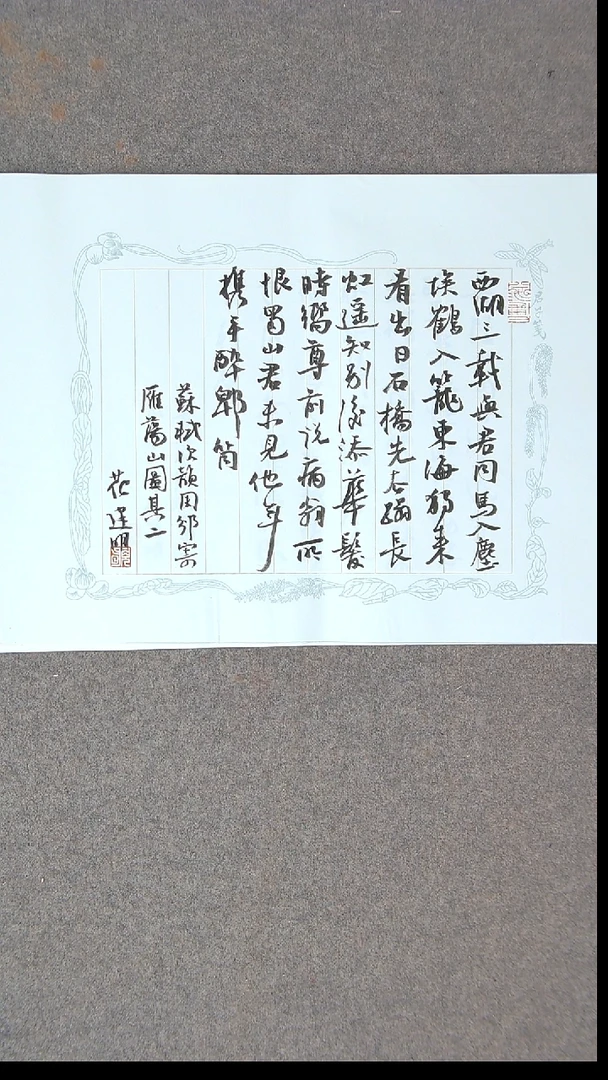 西湖三載與君同馬入塵
埃鶴入籠東海獨來
看出日石橋先去踏長
虹遥知别後添華髮
時嚮尊前说病翁所
恨蜀山君未見他年
携手醉郫筒
蘇軾次韻周邠寄
雁蕩山圖其二